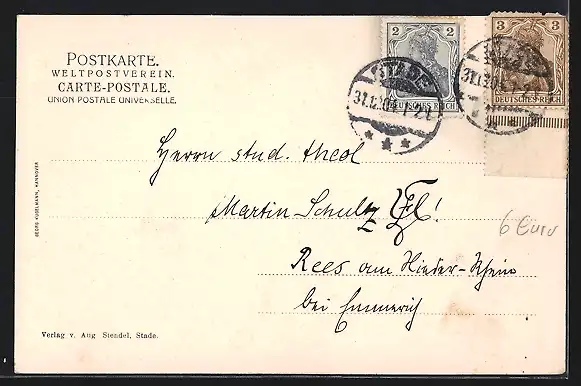 POSTKARTE.
WELTPOSTVEREIN.
CARTE-POSTALE.
UNION POSTALE UNIVERSELLE.
2 2
DEUTSCHES REICH
3 3
DEUTSCHES REICH
STADE
31.12.04
Herrn stud. theol
Martin Schultz
Rees am Nieder-Rhein
bei Emmerich
6 Euro
GEORG KUGELMANN, HANNOVER
Verlag v. Aug Stendel, Stade.